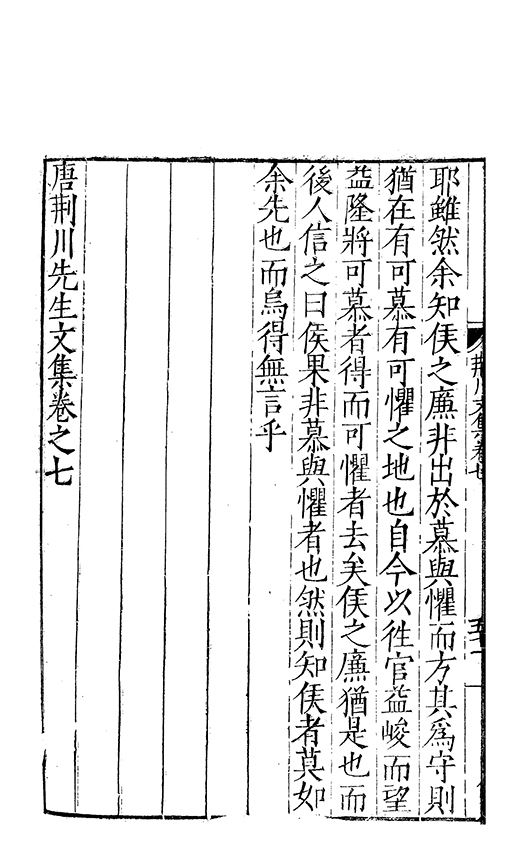 耶雖然余知侯之廉非出於慕與懼而方其爲守則
猶在有可慕有可懼之地也自今以徃官益峻而望
益隆將可慕者得而可懼者去矣侯之廉猶是也而
後人信之曰侯果非慕與懼者也然則知侯者莫如
余先也而烏得無言乎
唐荆川先生文集卷之七
荆川文集卷七